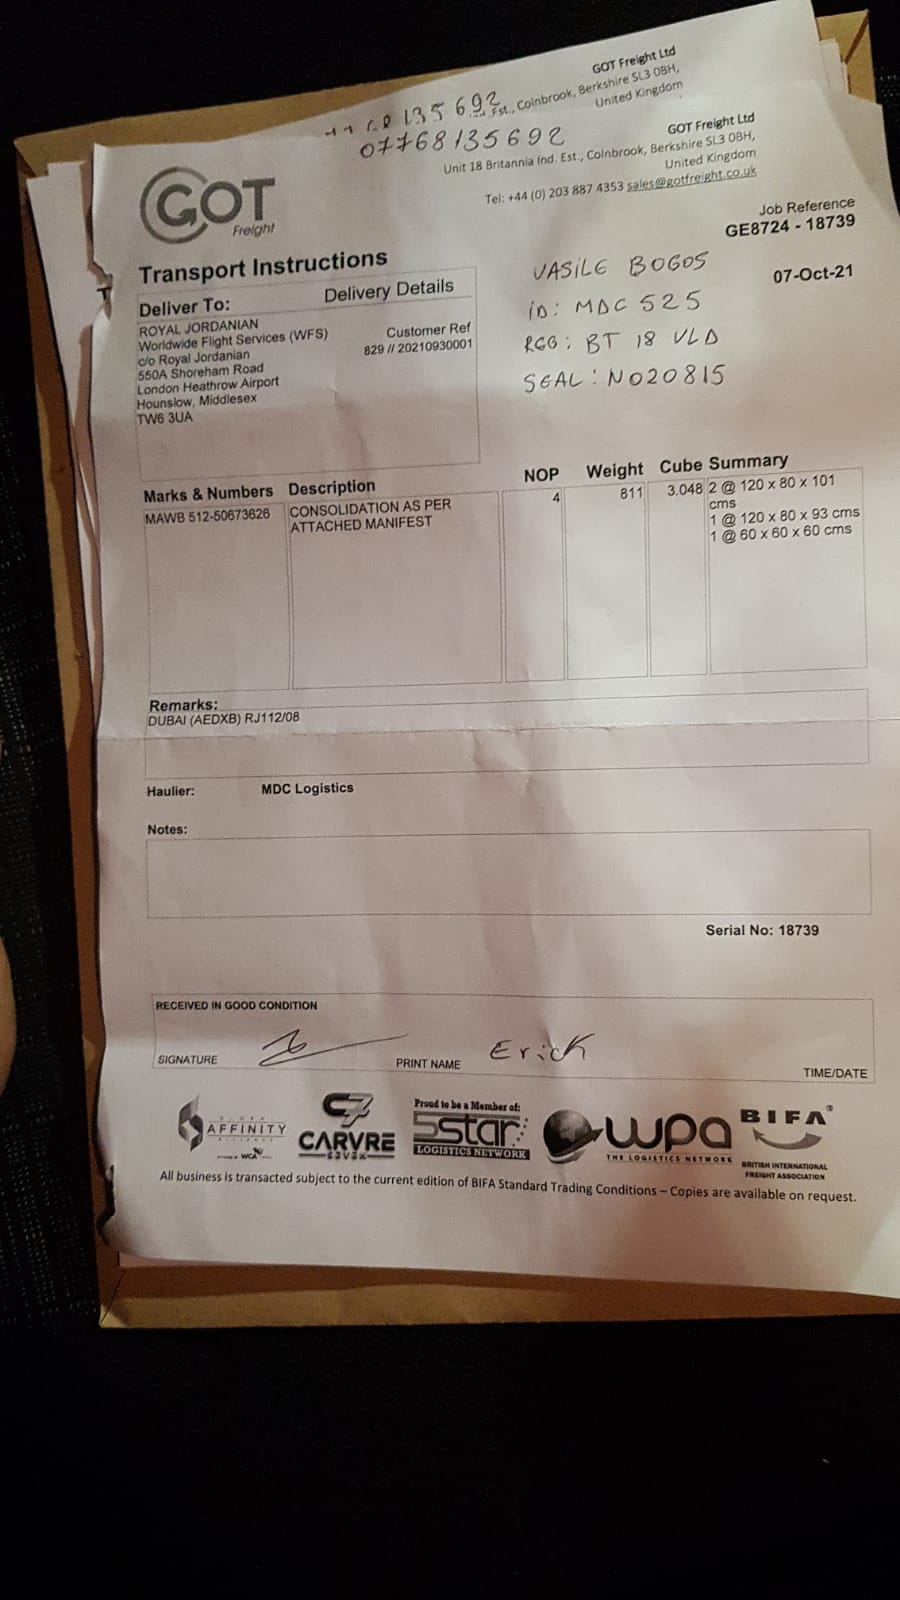 GOT Freight Ltd
Est., Colnbrook, Berkshire SL3 0BH,
United Kingdom
135 692
07768135692
GOT Freight Ltd
Unit 18 Britannia Ind. Est., Colnbrook, Berkshire SL3 0BH,
United Kingdom
Tel: +44 (0) 203 887 4353 sales@gotfreight.co.uk
GOT
Freight
Job Reference
GE8724 - 18739
07-Oct-21
Transport Instructions
Deliver To:
Delivery Details
ROYAL JORDANIAN
Worldwide Flight Services (WFS)
c/o Royal Jordanian
550A Shoreham Road
London Heathrow Airport
Hounslow, Middlesex
TW6 3UA
Customer Ref
829 // 20210930001
VASILE BOGOS
iD: MDC 525
REG: BT 18 VLD
SEAL: NO20815
Marks & Numbers Description NOP Weight Cube Summary
MAWB 512-50673626 CONSOLIDATION AS PER 4 811 3.048 2 @ 120 x 80 x 101
ATTACHED MANIFEST cms
1 @ 120 x 80 x 93 cms
1 @ 60 x 60 x 60 cms
Remarks:
DUBAI (AEDXB) RJ112/08
Haulier: MDC Logistics
Notes:
Serial No: 18739
RECEIVED IN GOOD CONDITION
SIGNATURE
PRINT NAME Erick
TIME/DATE
AFFINITY
WCA
C7
CARVRE
SEVEN
Proud to be a Member of:
5star
LOGISTICS NETWORK
wpa
THE LOGISTICS NETWORK
BIFA®
BRITISH INTERNATIONAL
FREIGHT ASSOCIATION
All business is transacted subject to the current edition of BIFA Standard Trading Conditions – Copies are available on request.